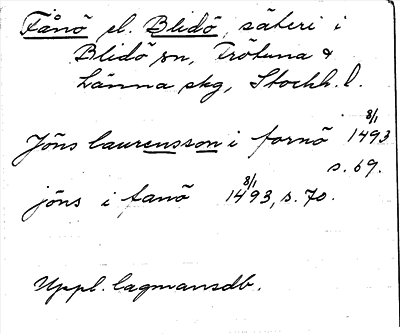 Fånö el. Blidö, säteri i
Blidö sn, Frötuna &
Länna skg, Stockh. l.
Jöns laurensson i fornö 8/1 1493
s. 69.
jöns i fanö 8/1 1493, s. 70.
Uppl. lagmansdb.